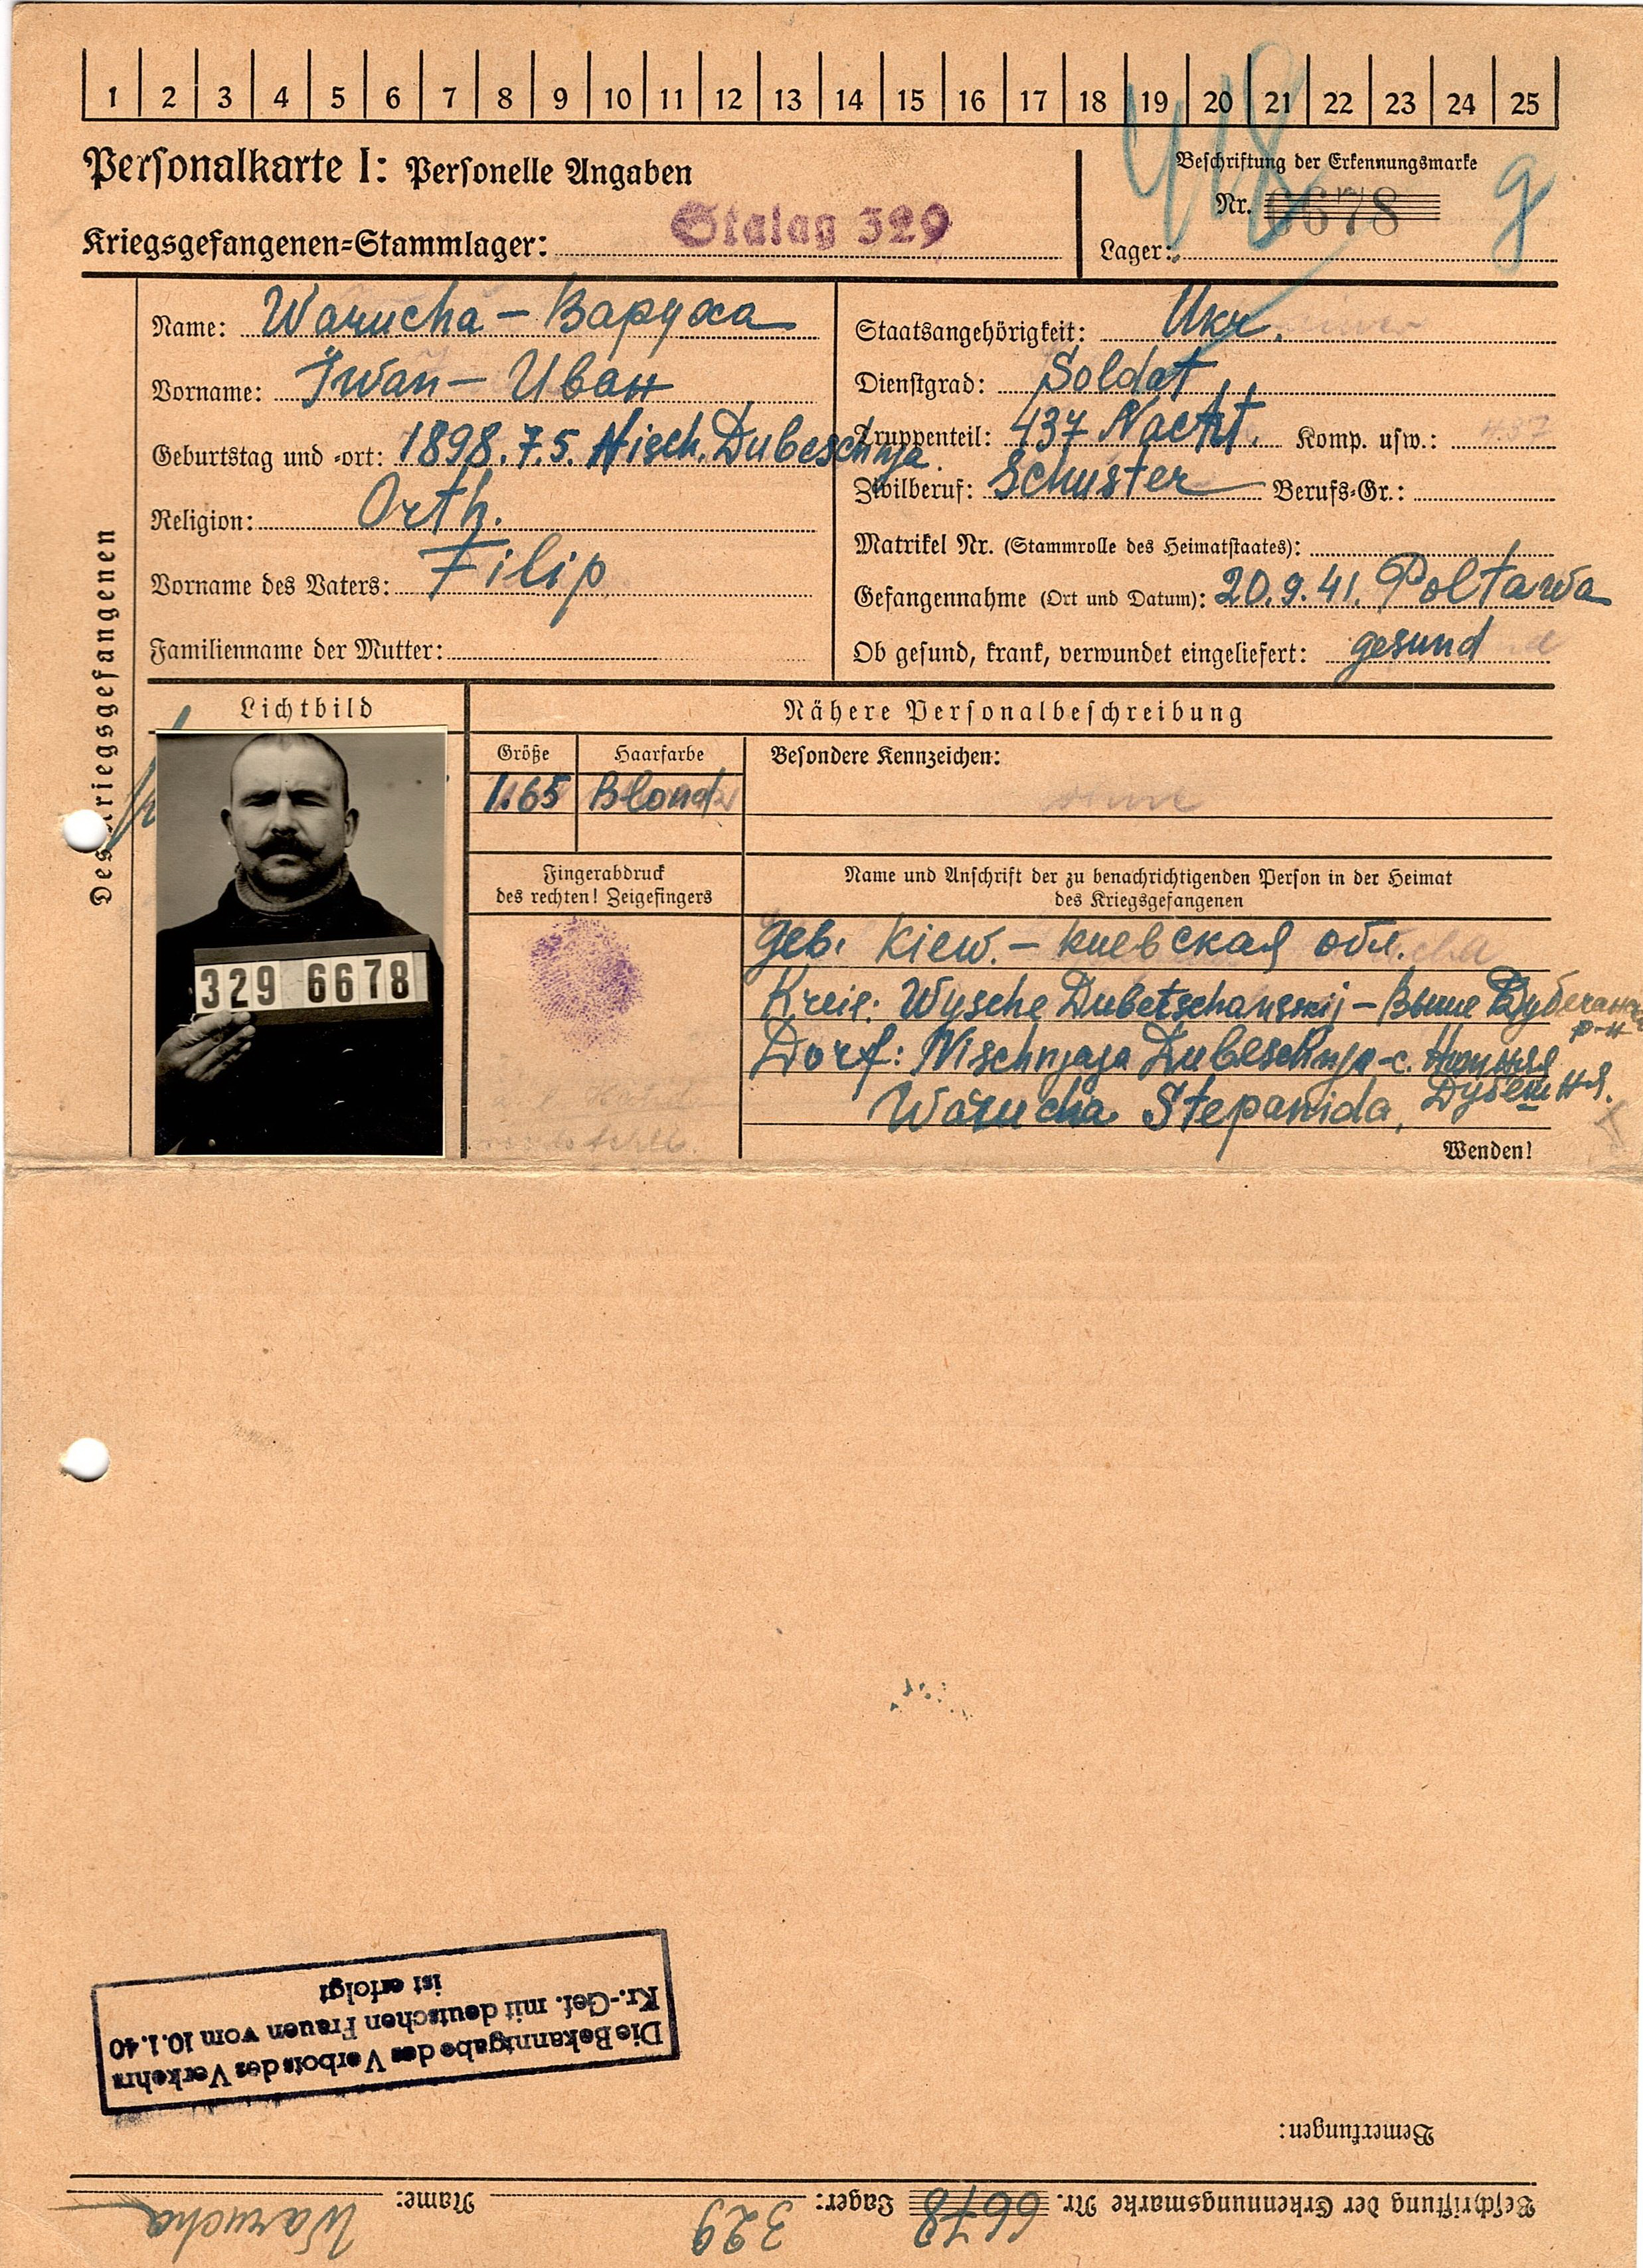 1 2 3 4 5 6 7 8 9 10 11 12 13 14 15 16 17 18 19 20 21 22 23 24 25
418
Personalkarte I: Personelle Angaben
Beschriftung der Erkennungsmarke
Nr. 6678
g
Kriegsgefangenen=Stammlager: Stalag 329
Lager:
Des Kriegsgefangenen
Name: Warucha – Варуха
Vorname: Iwan – Иван
Geburtstag und -ort: 1898.7.5. Nisch. Dubeschnja.
Religion: Orth.
Vorname des Vaters: Filip
Familienname der Mutter:
Staatsangehörigkeit: Ukr.
Dienstgrad: Soldat
Truppenteil: 437 Komp. usw.: 437
Zivilberuf: Schuster Berufs=Gr.:
Matrikel Nr. (Stammrolle des Heimatstaates):
Gefangennahme (Ort und Datum): 20.9.41. Poltawa
Ob gesund, krank, verwundet eingeliefert: gesund
Lichtbild
329 6678
Nähere Personalbeschreibung
Größe
1.65
Haarfarbe
Blond
Besondere Kennzeichen:
ohne
Fingerabdruck
des rechten! Zeigefingers
Name und Anschrift der zu benachrichtigenden Person in der Heimat
des Kriegsgefangenen
Geb. Kiew. – Киевская обл.
Kreis: Wysche Dubetschanskij – Выше р-н
Dorf: Nischnjaja Dubeschnja – с. Нижняя
Дубешня.
Warucha Stepanida,
Wenden!
Die Bekanntgabe des Verbots des Verkehrs
Kr.-Gef. mit deutschen Frauen vom 10.1.40
ist erfolgt
Bemerkungen:
Beschriftung der Erkennungsmarke Nr. 6678 Lager: 329 Name: Warucha